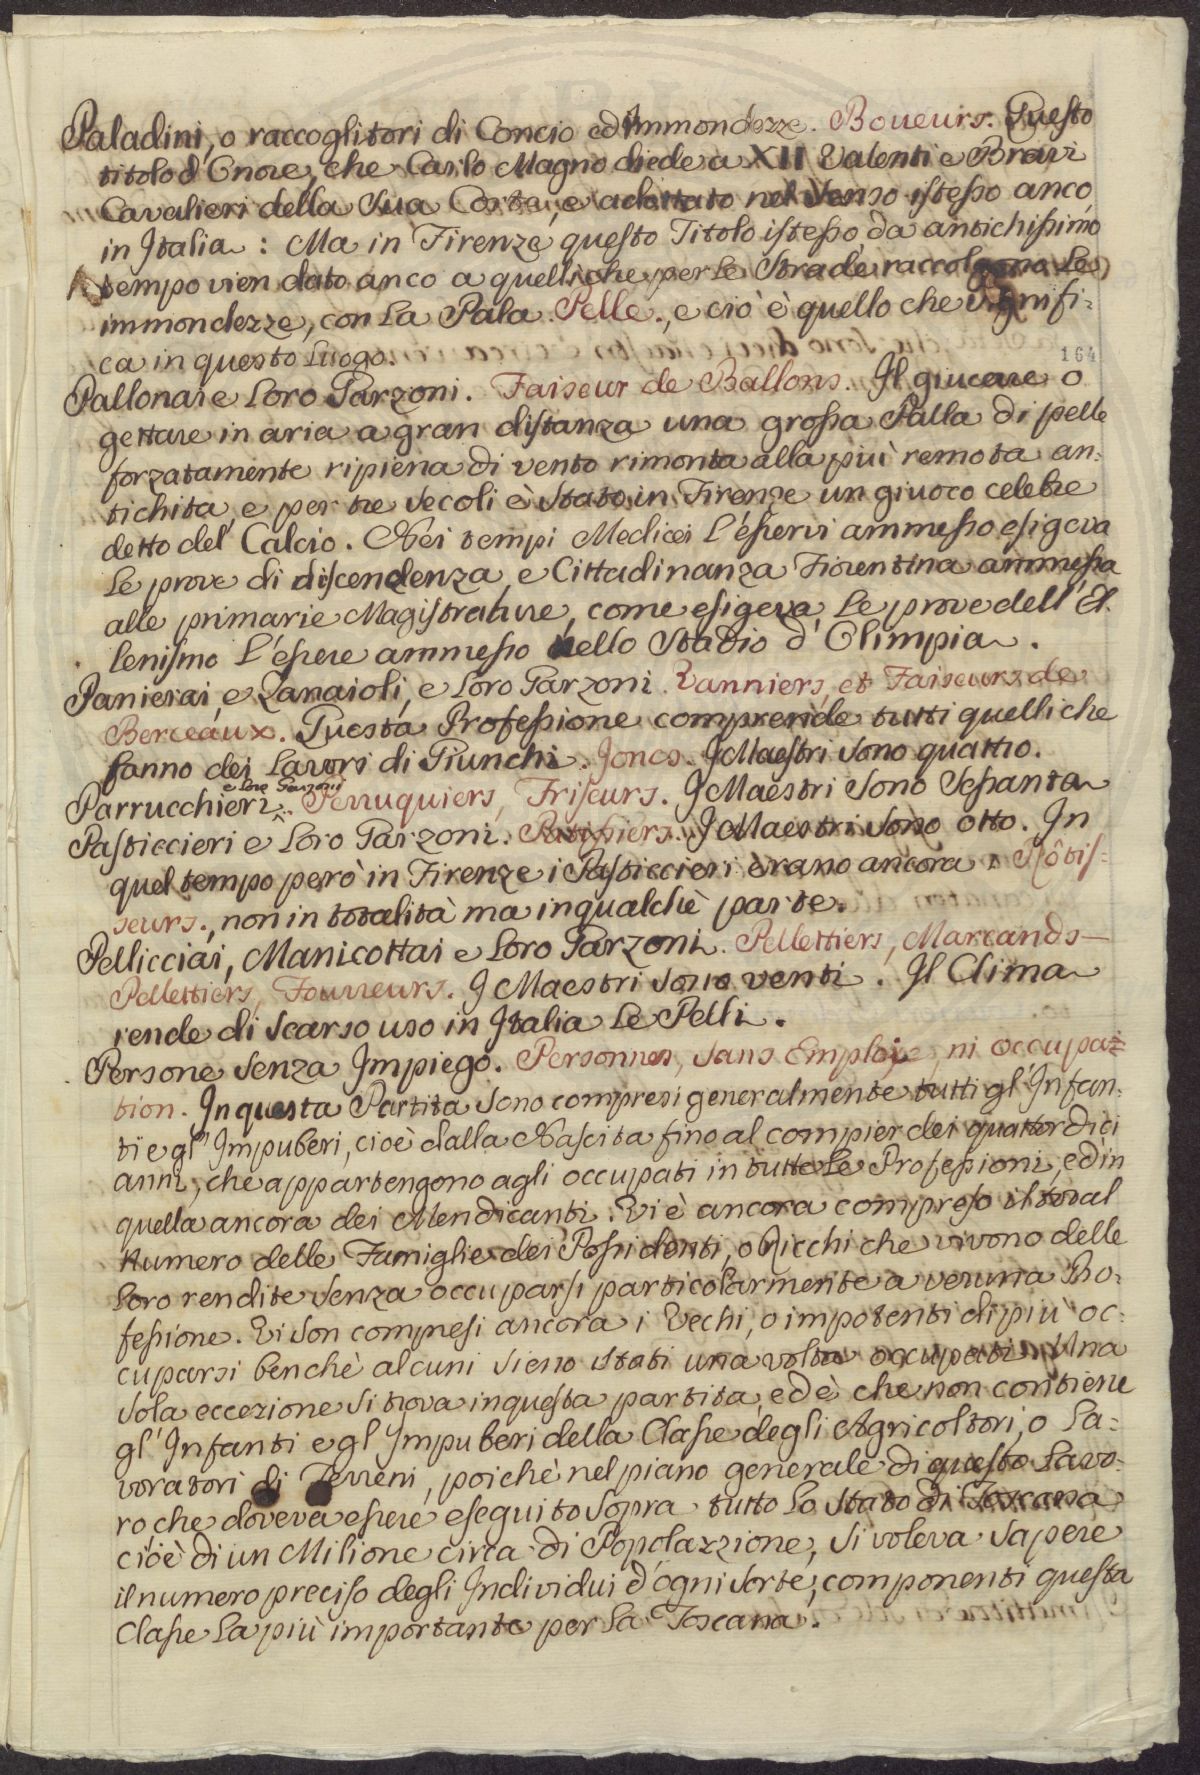 Paladini, o raccoglitori di Concio ed Immondezze. Boueurs. Questo
titolo d'Onore, che Carlo Magno diede a XII Valenti e Bravi
Cavalieri della Sua Corte, è adottato nel Senso istesso anco
in Italia: Ma in Firenze questo Titolo istesso da antichissimo
tempo vien dato anco a quelli che per le Strade raccolgono le
immondezze, con la Pala. Pelle., e ciò è quello che signifi-
ca in questo Luogo.
164
Pallonai e Loro Garzoni. Faiseur de Ballons. Il giucare o
gettare in aria a gran distanza una grossa Palla di pelle
forzatamente ripiena di vento rimonta alla più remota an-
tichita, e per tre Secoli è Stato in Firenze un giuoco celebre
detto del Calcio. Nei tempi Medicei l'esservi ammesso esigeva
le prove di discendenza, e Cittadinanza Fiorentina ammessa
alle primarie Magistrature, come esigeva le prove dell' El-
lenismo l'essere ammesso nello Stadio d'Olimpia.
Panierai, e Zanaioli, e Loro Garzoni. Vanniers, et Faiseurs de
Berceaux. Questa Professione comprende tutti quelli che
fanno dei Lavori di Giunchi. Joncs. I Maestri sono quattro.
e Loro Garzoni
Parrucchieri. Perruquiers, Friseurs. I Maestri Sono Sessanta
Pasticcieri e Loro Garzoni. Patissiers. I Maestri Sono otto. In
quel tempo però in Firenze i Pasticcieri erano ancora Rôtis-
seurs., non in totalità ma in qualchè parte.
Pellicciai, Manicottai e Loro Garzoni. Pellettiers, Marcands
Pellettiers, Fourreurs. I Maestri Sono venti. Il Clima
rende di scarso uso in Italia le Pelli.
Persone Senza Impiego. Personnes, Sans Emploie, ni occupa-
tion. In questa Partita Sono compresi generalmente tutti gl'Infan-
ti e gl' Impuberi, cioè dalla Nascita fino al compier dei quattordici
anni, che appartengono agli occupati in tutte le Professioni, ed in
quella ancora dei Mendicanti. Vi è ancora compreso il total
Numero delle Famiglie dei Possidenti, o Ricchi che vivono delle
loro rendite Senza occuparsi particolarmente a veruna Pro-
fessione. Vi son compresi ancora i Vechi, o impotenti di più oc-
cuparsi benchè alcuni sieno stati una volta occupati. Una
Sola eccezione Si trova in questa partita, ed è che non contiene
gl' Infanti e gl' Impuberi della Classe degli Agricoltori, o La-
voratori di Terreni, poichè nel piano generale di questo Lavo-
ro che doveva essere eseguito sopra tutto lo Stato di Toscana
cioè di un Milione circa di Popolazzione, Si voleva Sapere
il numero preciso degli Individui d'ogni Sorte, componenti questa
Classe la più importante per la Toscana.